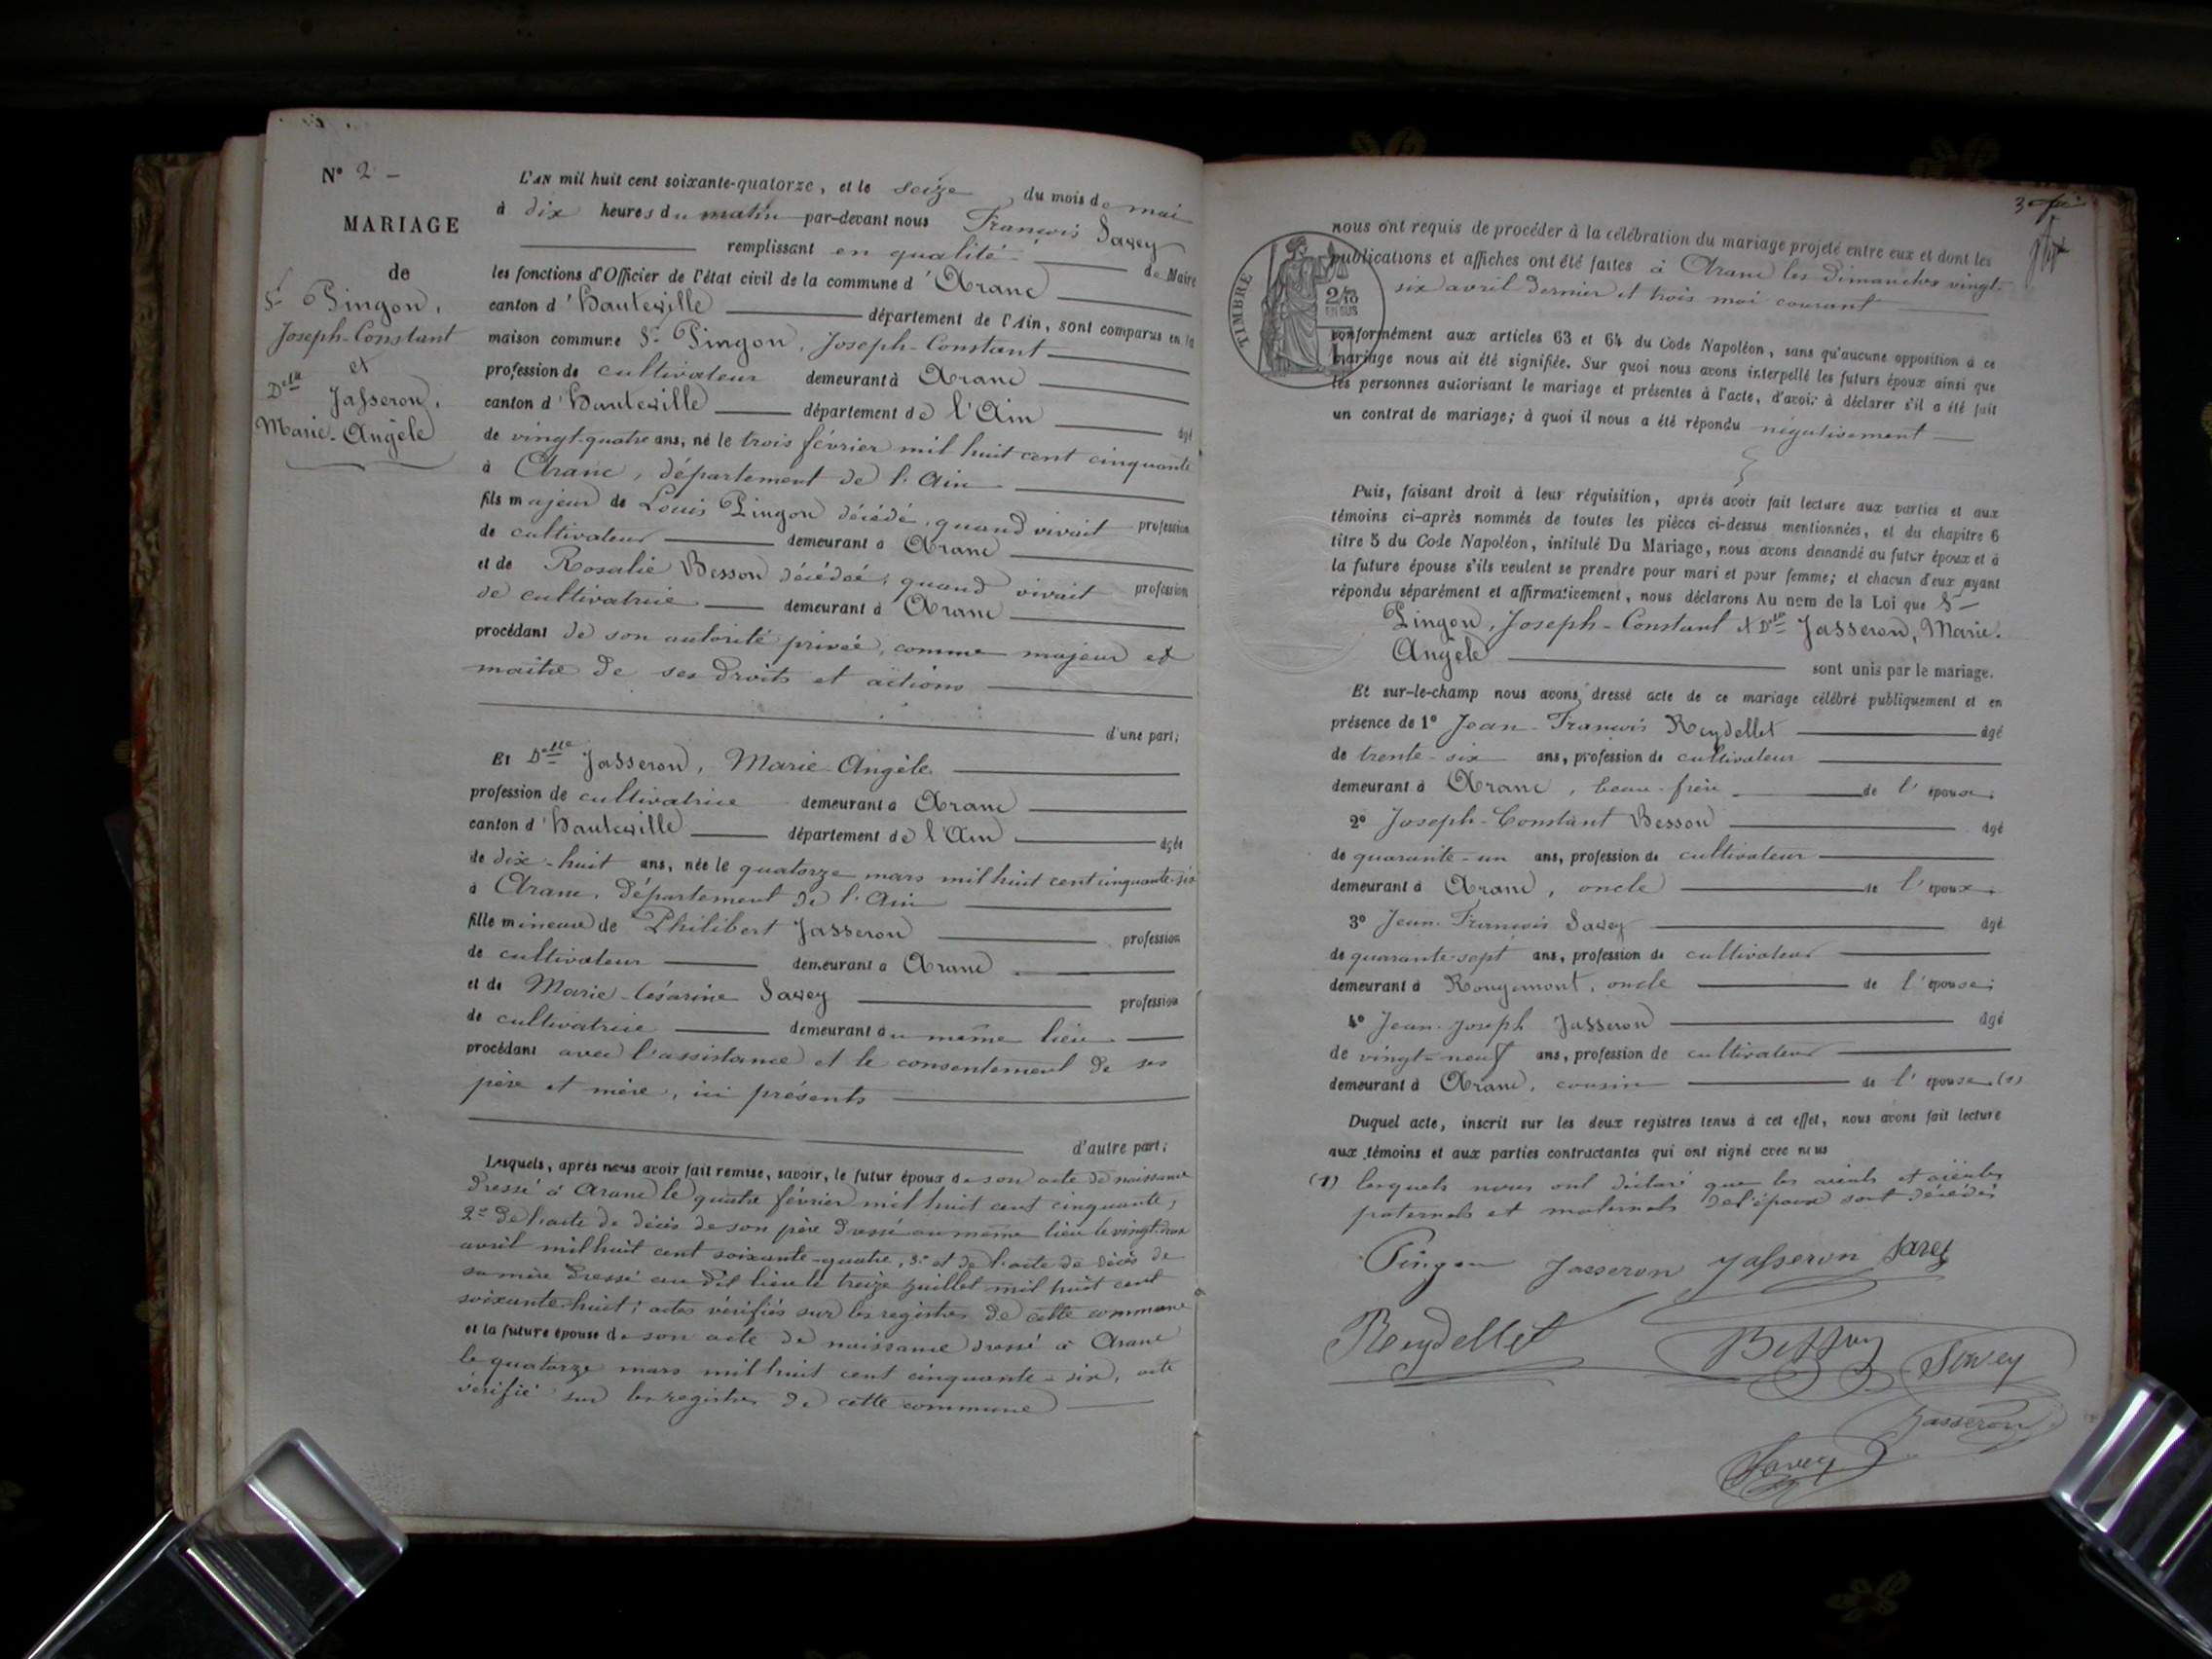 N° 2 –
MARIAGE
de
Sr Pingon,
Joseph-Constant
et
Delle Jasseron,
Marie-Angèle
L'AN mil huit cent soixante-quatorze, et le seize du mois de mai
à dix heures du matin par-devant nous François Savey
remplissant en qualité de Maire
les fonctions d'Officier de l'état civil de la commune d'Aranc
canton d'Hauteville département de l'Ain, sont comparus en la
maison commune Sr Pingon, Joseph-Constant
profession de cultivateur demeurant à Aranc
canton d'Hauteville département de l'Ain âgé
de vingt-quatre ans, né le trois février mil huit cent cinquante
à Aranc, département de l'Ain
fils majeur de Louis Pingon décédé, quand vivait profession
de cultivateur demeurant à Aranc
et de Rosalie Besson décédée, quand vivait profession
de cultivatrice demeurant à Aranc
procédant de son autorité privée, comme majeur et
maître de ses droits et actions
d'une part;
Et Delle Jasseron, Marie-Angèle
profession de cultivatrice demeurant à Aranc
canton d'Hauteville département de l'Ain âgée
de dix-huit ans, née le quatorze mars mil huit cent cinquante-six
à Aranc, département de l'Ain
fille mineure de Philibert Jasseron profession
de cultivateur demeurant à Aranc
et de Marie-Césarine Savey profession
de cultivatrice demeurant au même lieu
procédant avec l'assistance et le consentement de ses
père et mère, ici présents
d'autre part;
Lesquels, après nous avoir fait remise, savoir, le futur époux de son acte de naissance
dressé à Aranc le quatre février mil huit cent cinquante,
2° de l'acte de décès de son père dressé au même lieu le vingt-deux
avril mil huit cent soixante-quatre, 3° et de l'acte de décès de
sa mère dressé au dit lieu le treize juillet mil huit cent
soixante-huit; actes vérifiés sur les registres de cette commune
et la future épouse de son acte de naissance dressé à Aranc
le quatorze mars mil huit cent cinquante-six, acte
vérifié sur les registres de cette commune
3
TIMBRE
2/10
EN SUS
nous ont requis de procéder à la célébration du mariage projeté entre eux et dont les
publications et affiches ont été faites à Aranc les Dimanches vingt-
six avril dernier et trois mai courant
conformément aux articles 63 et 64 du Code Napoléon, sans qu'aucune opposition à ce
mariage nous ait été signifiée. Sur quoi nous avons interpellé les futurs époux ainsi que
les personnes autorisant le mariage et présentes à l'acte, d'avoir à déclarer s'il a été fait
un contrat de mariage; à quoi il nous a été répondu négativement
Puis, faisant droit à leur réquisition, après avoir fait lecture aux parties et aux
témoins ci-après nommés de toutes les pièces ci-dessus mentionnées, et du chapitre 6
titre 5 du Code Napoléon, intitulé Du Mariage, nous avons demandé au futur époux et à
la future épouse s'ils veulent se prendre pour mari et pour femme; et chacun d'eux ayant
répondu séparément et affirmativement, nous déclarons Au nom de la Loi que Sr
Pingon, Joseph-Constant & Delle Jasseron, Marie-
Angèle sont unis par le mariage.
Et sur-le-champ nous avons dressé acte de ce mariage célébré publiquement et en
présence de 1° Jean-François Reydellet âgé
de trente-six ans, profession de cultivateur
demeurant à Aranc, beau-frère de l'épouse;
2° Joseph-Constant Besson âgé
de quarante-un ans, profession de cultivateur
demeurant à Aranc, oncle de l'époux;
3° Jean-François Savey âgé
de quarante-sept ans, profession de cultivateur
demeurant à Rougemont, oncle de l'épouse;
4° Jean-Joseph Jasseron âgé
de vingt-neuf ans, profession de cultivateur
demeurant à Aranc, cousin de l'épouse (1)
Duquel acte, inscrit sur les deux registres tenus à cet effet, nous avons fait lecture
aux témoins et aux parties contractantes qui ont signé avec nous
(1) lesquels nous ont déclaré que les aïeuls et aïeules
paternels et maternels de l'époux sont décédés
Pingon Jasseron Jasseron Savey
Reydellet Besson Savey
Jasseron
Savey